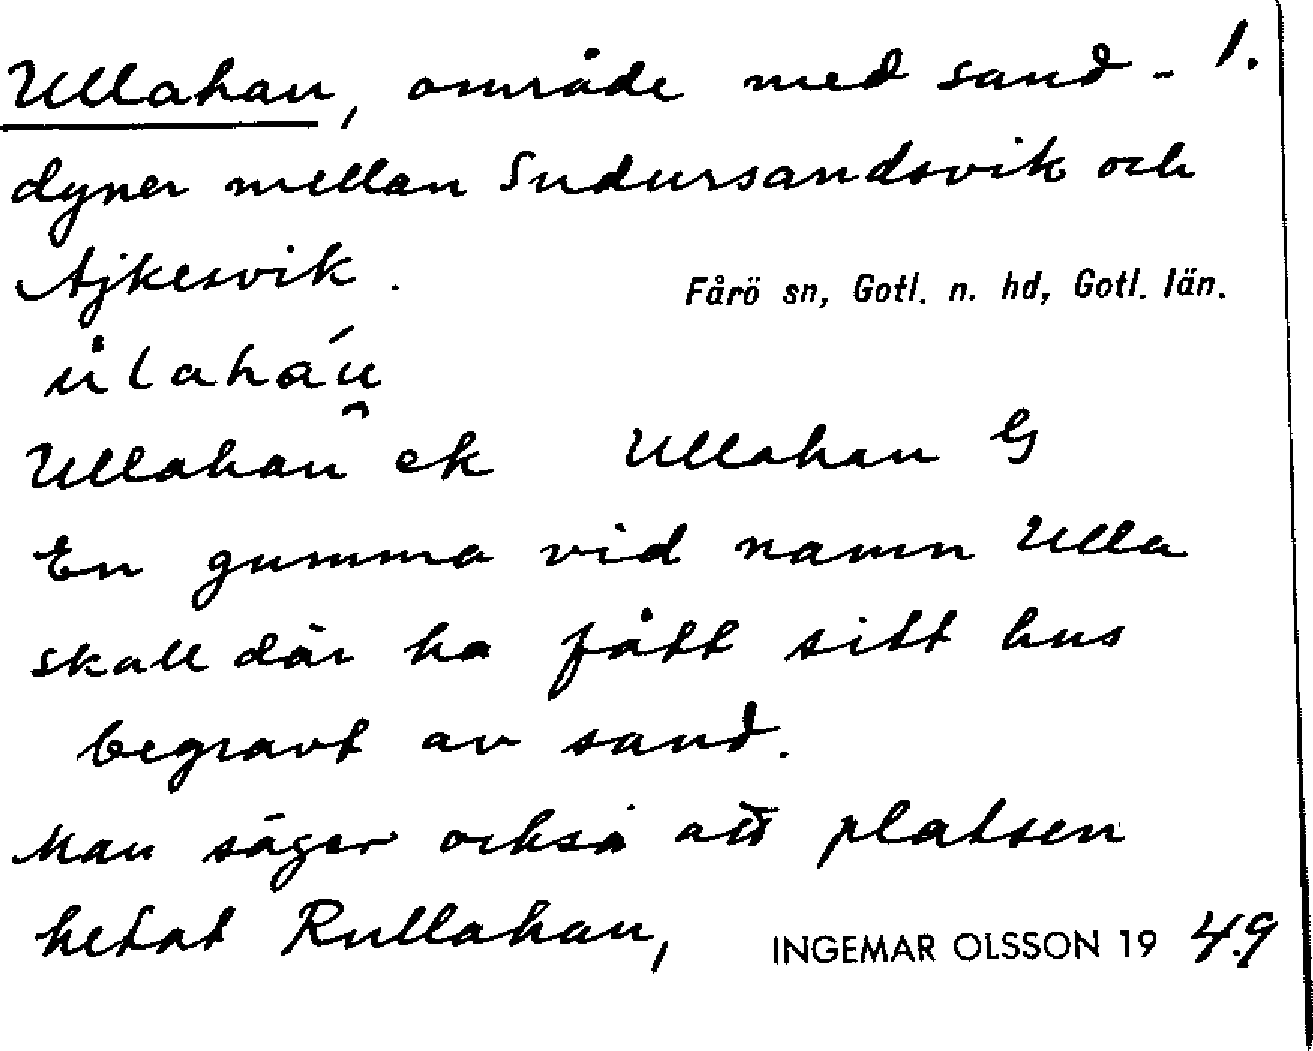 Ullahau, område med sand- 1.
dyner mellan Sudursandsvik och
Ajkesvik.
Fårö sn, Gotl. n. hd, Gotl. län.
Ullahau ek Ullahau G
En gumma vid namn Ulla
skall där ha fått sitt hus
begravt av sand.
Man säger också att platsen
hetat Rullahau,
INGEMAR OLSSON 19 49